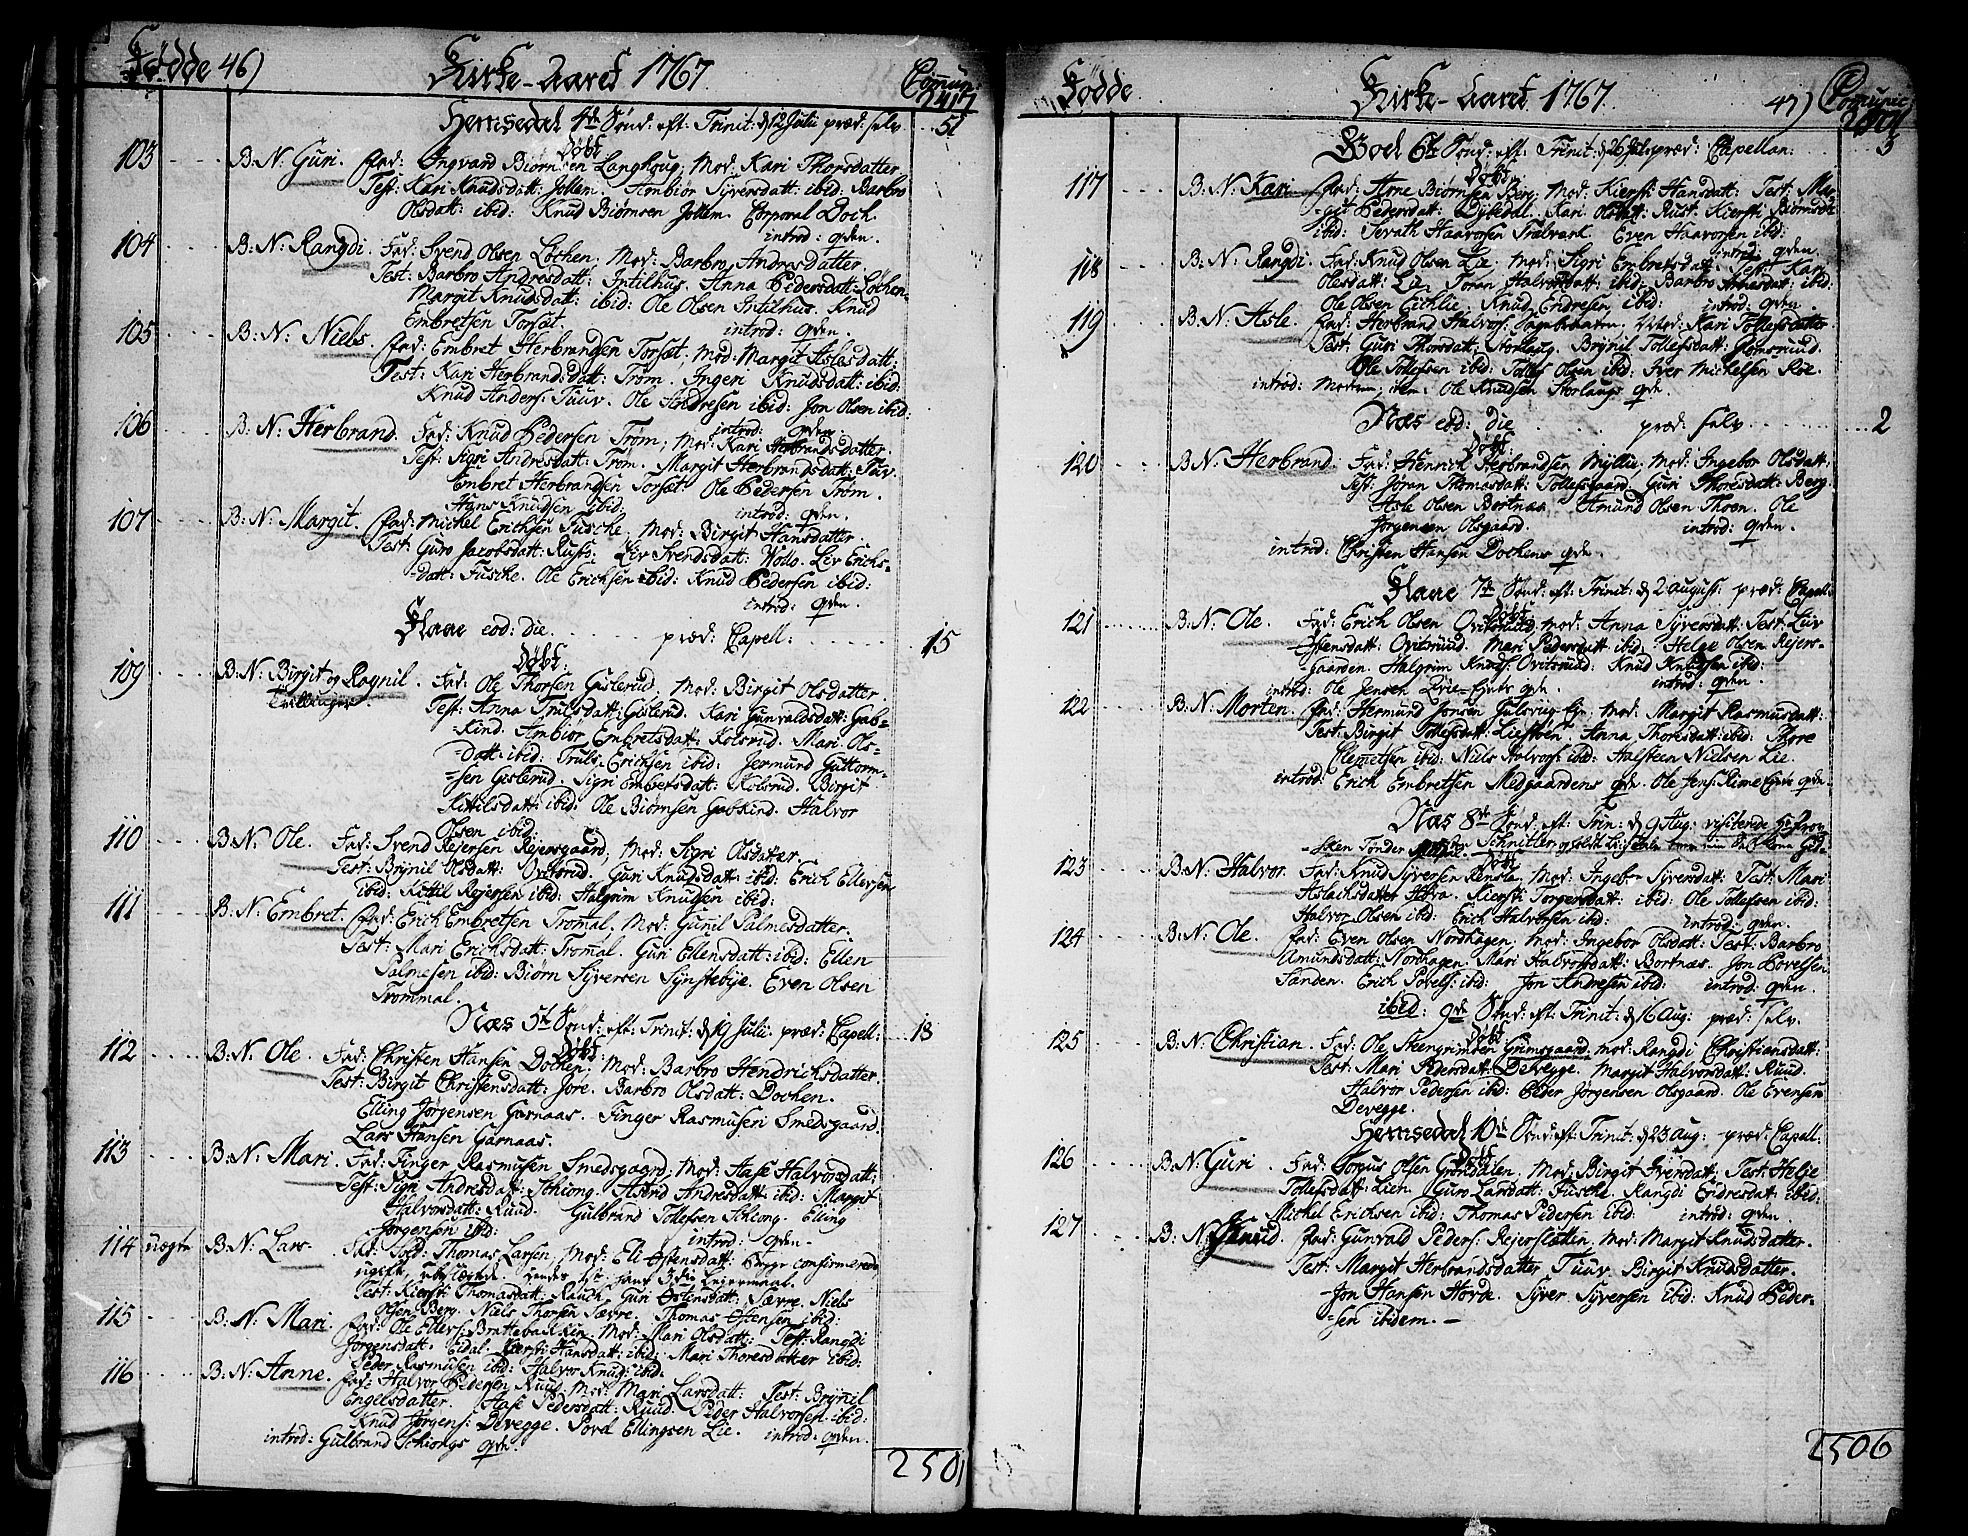 Fødde 46) Kirke-Aaret 1767. Com̄un:
2417
Hemsedal 4de Sønd: eft: Trinit: d 12 Julii præd: selv 51
Døbt
103 B: N: Guri. Fad: Ingvard Biørnsen Langhoug; Mod: Kari Thorsdatter
Test: Kari Knudsdatt: Jollem. Ambiør Syversdatt: ibid: Barbro
Olsdatt: ibid: Knud Biørnsen Jollem. Corporal Doch.
introd: qven.
104 B: N: Rangdi. Fad: Svend Olsen Løchen, Mod: Barbro Andresdatter
Test: Barbro Andresdatt: Intilhus. Anna Pedersdatt: Løchen.
Margit Knudsdatt: ibid: Ole Olsen Intilhus. Knud
Embretsen Torsæt. introd: qven.
105 B: N: Niels. Fad: Embret Herbrandsen Torsæt, Mod: Margit Aslesdatt:
Test: Kari Herbrandsdatt: Trøm. Ingeri Knudsdatt: ibid:
Knud Anders: Tuuv. Ole Andresen ibid: Jon Olsen ibid:
introd: qven.
106 B: N: Herbrand. Fad: Knud Pedersen Trøm; Mod: Kari Herbrandsdatter.
Test: Sigri Andresdatt: Trøm. Margit Herbrandsdatt: Tuv.
Embret Herbrandsen Torsæt. Ole Pedersen Trøm.
Hans Knudsen ibid: introd: qven.
107 B: N: Margit. Fad: Michel Erichsen Fusche, Mod: Birgit Hansdatter
Test: Guro Jacobsdatt: Rusts. Liv Svendsdatt: Wøllo. Liv Erichs-
-datt: Fusche. Ole Erichsen ibid: Knud Pedersen ibid:
introd: qven.
Flaae eod: die. præd: Capell: 15
Døbt:
109 B: N: Birgit og Ragnil. Fad: Ole Thorsen Gislerud, Mod: Birgit Olsdatter.
Tvillinger. Test: Anna Trulsdatt: Gislerud. Kari Gunvaldsdatt: Gab-
-Kind. Ambiør Embretsdatt: Kolsrud. Mari Ols-
-datt: ibid: Truls Erichsen ibid: Germund Guttorm-
-sen Gislerud. Sigri Embretsdatt: Kolsrud. Birgit
Kittilsdatt: ibid: Ole Biørnsen Gabkind. Halvor
Olsen ibid:
110 B: N: Ole. Fad: Svend Rejersen Rejersgaard, Mod: Sigri Olsdatter
Test: Brÿnil Olsdatt: Ovitsrud. Guri Knudsdatt: ibid: Erich Ellersen
ibid: Kittil Rejersen ibid: Halgrim Knudsen ibid:
111 B: N: Embret. Fad: Erich Embretsen Trom̄al, Mod: Gunil Palmesdatter.
Test: Mari Erichsdatt: Trom̄al. Guri Ellensdatt: ibid: Ellen
Palmesen ibid: Biørn Syversen Synstebÿe. Even Olsen
Trommal.
Næs 5te Sønd: eft: Trinit: d 19 Julii. præd: Capell: 18
Døbt
112 B: N: Ole. Fad: Christen Hansen Dochen; Mod: Barbro Hendrichsdatter.
Test: Birgit Christensdatt: Jore. Barbro Olsdatt: Dochen.
Elling Jørgensen Garnaas. Finger Rasmusen Smedsgaard.
Lars Hansen Garnaas.
113 B: N: Mari. Fad: Finger Rasmusen Smedsgaard, Mod: Aase Halvorsdatt:
Test: Sigri Andresdatt: Schiong. Astrid Andresdatt: ibid: Margit
Halvorsdatt: Ruud. Gulbrand Tollefsen Schiong. Elling
Jørgensen ibid: introd: qven.
114 uægte B: N: Lars. Fad: Sold: Thomas Larsen, Mod: Eli Østensdatt: begge confirmerede
ugift
Test: Kiersti Thomasdatt: Rauch. Guri Østensdatt: Sævre. Niels
Olsen Berg. Niels Thorsen Sævre. Thomas Østensen ibid:
115 B: N: Mari. Fad: Ole Ellers: Brattebakken, Mod: Mari Olsdatt: Test: Rangdi
Jørgensdatt: Eidal. Kiersti Hansdatt: ibid: Mari Thoresdatter ibid:
Peder Rasmusen ibid: Halvor Knuds: ibid:
116 B: N: Anne. Fad: Halvor Pedersen Ruud, Mod: Mari Larsdatt: Test: Brÿnil
Engelsdatter. Aase Pedersdatt: Ruud. Peder Halvorsen ibid:
Knud Jørgens: Devegge. Povel Ellingsen Lie. introd: qven.
introd: Gulbrand Schiongs qven.
2501
Fødde Kirke-Aaret 1767. 47) Comunic
2501
Goel 6te Sønd: eft: Trinit: d 26 Julii præd: Capellan: 3
Døbt
117 B: N: Kari. Fad: Arne Biørnsen Berg, Mod: Kiersti Hansdatt: Test: Mar-
-git Pedersdatt: Dÿbedal. Kari Olsdatt: Rust. Kiersti Biørnsdt
ibid: Tevath Haavorsen Trælvant. Even Haavorsen ibid:
introd: qven
118 B: N: Rangdi. Fad: Knud Olsen Lie, Mod: Sigri Embretsdatt: Test: Kari
Olesdatt: Lie, Joran Halvorsdatt: ibid: Barbro Arnesdatt: ibid:
Ole Olsen Eichlie. Knud Endresen, ibid: introd: qven.
119 B: N: Asle. Fad: Herbrand Halvors: Mod: Kari Tollefsdatter
Test: Guri Thorsdatt: Storlaug. Brÿnil Tollefsdatt: Gomsrud.
Ole Tollefsen ibid: Tollef Olsen ibid: Iver Michelsen Roe.
introd: Ole Knudsen Storlaugs qven.
Næs eod: die præd: selv. 2
Døbt:
120 B: N: Herbrand. Fad: Henrich Herbrandsen Mÿllin, Mod: Ingebor Olsdatt:
Test: Joran Thomasdatt: Tollefsgaard. Guri Thoresdatt: Berg.
Asle Olsen Bortnæs. Amund Olsen Thoen. Ole
Jørgensen Olsgaard. introd: qven.
introd: Christen Hansen Dochens qven.
Flaae 7de Sønd: eft: Trinit: d 2 august: præd: Capell:
Døbt
121 B: N: Ole. Fad: Erich Olsen Ovitsrud, Mod: Anna Syversdatt: Test: Liv
Østensdatt: Ovitsrud. Mari Pedersdatt: ibid: Helge Olsen Rejers-
-gaarden. Halgrim Knuds: Ovitsrud. Knud Knudsen ibid:
introd: Ole Jensen qven. introd: qven.
122 B: N: Morten. Fad: Hermund Jonsen Gulsvug Ejr, Mod: Margit Rasmusdatt:
Test: Birgit Tollefsdatt: Liestøen. Anna Thoresdatt: ibid: Thore
Clemetsen ibid: Niels Halvors: ibid: Halsteen Nielsen Lie.
introd: Erich Embretsen Medgaardens qven. Ole Jens: qven.
Næs 8de Sønd: eft: Trin: d 9 Aug: visiterede Hr Prov-
Døbt
123 B: N: Halvor. Fad: Knud Syversen Rensla, Mod: Ingebor Syversdatt: Test: Mari
Aslachsdatter Hofva. Kiersti Torgersdatt: ibid: Ole Tollefsen ibid:
Halvor Olsen ibid: Erich Halvorsen ibid: introd: qven.
124 B: N: Ole. Fad: Even Olsen Nordhagen, Mod: Ingebor Olsdatt: Test: Barbro
Amundsdatt: Nordhagen. Mari Halvorsdatt: Bortnæs. Jon Povelsen
Sanden. Erich Povels: ibid: Jon Andresen ibid: introd: qven.
ibid: 9de Sønd: eft: Trinit: d 16 Aug: præd: selv.
Døbt
125 B: N: Christian. Fad: Ole Steengrimsen Grimsgaard, Mod: Rangdi Christiansdatt:
Test: Mari Pedersdatt: Devegge. Margit Halvorsdatt: Ruud.
Halvor Pedersen ibid: Peder Jørgensen Olsgaard. Ole Evensen
Devegge.
Hemsedal 10de Sønd: eft: Trinit: d 23 Aug: præd: Capell:
Døbt
126 B: N: Guri. Fad: Torgus Olsen Grøndalen, Mod: Birgit Iversdatt: Test: Helje
Tollefsdatt: Lien. Guro Larsdatt: Fusche. Rangdi Endresdatt: ibid:
Michel Erichsen ibid: Thomas Pedersen ibid: introd: qven.
127 B: N: Fad: Gunvald Peders: Rejersløtten, Mod: Margit Knudsdatter.
Test: Margit Herbrandsdatter Tuuv. Birgit Knudsdatter
Jon Hansen Horde. Syver Syversen ibid: Knud Peder-
-sen ibidem. —
2506